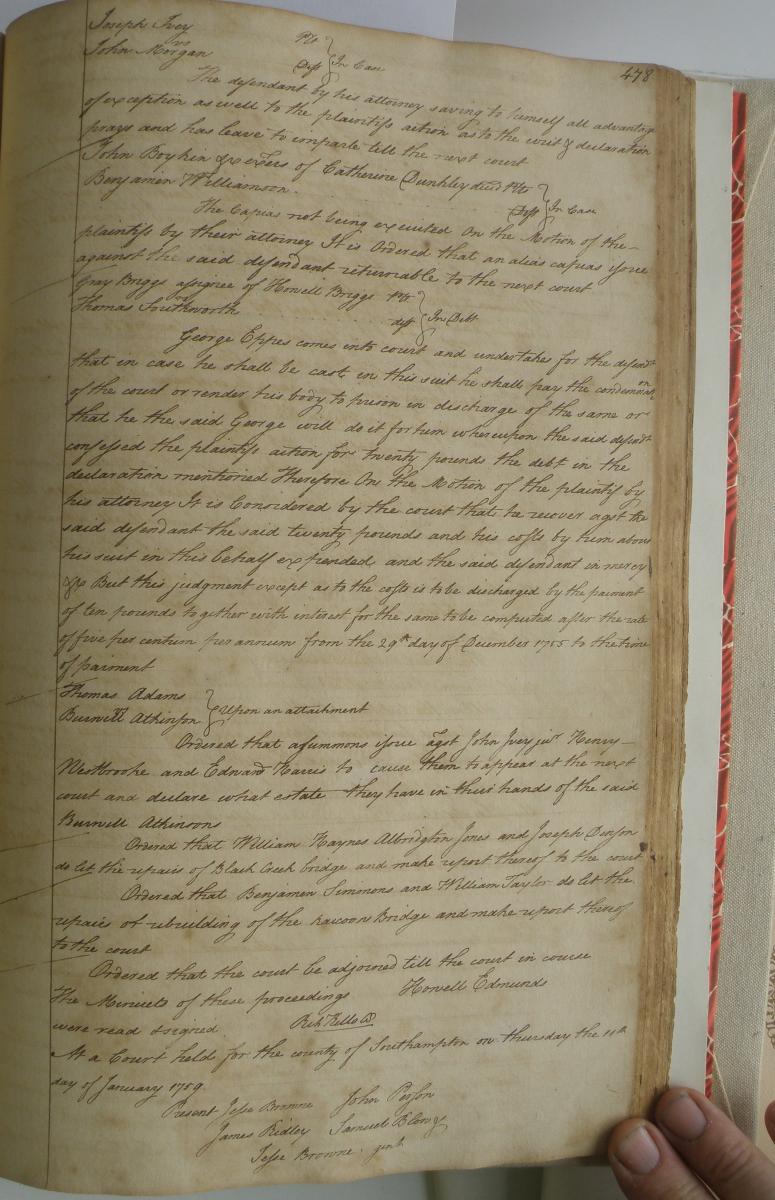 478
Joseph Ivey Plt
vs
John Morgan Deft } In Case
The defendant by his attorney saving to himself all advantage
of exception as well to the plaintifs action as to the writ & declaration
prays and has leave to imparle till the next court
John Boykin &c exers of Catherine Dunkley decd Plts
Benjamin Williamson Deft } In Case
The Capias not being executed On the Motion of the
plaintifs by their attorney It is Ordered that an alias capias issue
against the said defendant returnable to the next court
Gray Briggs assignee of Howell Briggs plt
vs
Thomas Southworth deft } In Debt
George Eppes comes into court and undertakes for the defendt
that in case he shall be cast in this suit he shall pay the condemnation
of the court or render his body to prison in discharge of the same or
that he the said George will do it for him whereupon the said defendt
confessed the plaintifs action for twenty pounds the debt in the
declaration mentioned Therefore On the Motion of the plaintif by
his attorney It is Considered by the court that he recover agst the
said defendant the said twenty pounds and his costs by him about
his suit in this behalf expended and the said defendant in mercy
&c But this judgment except as to the costs is to be discharged by the paiment
of ten pounds together with interest for the same to be computed after the rate
of five per centum per annum from the 29th day of December 1755 to the time
of paiment
Thomas Adams
vs
Burwell Atkinson } Upon an attachment
Ordered that a summons issue agst John Ivey junr Henry
Westbrooke and Edward Harris to cause them to appear at the next
court and declare what estate they have in their hands of the said
Burwell Atkinsons
Ordered that William Haynes Albridgton Jones and Joseph Denson
do let the repairs of Black Creek bridge and make report thereof to the court
Ordered that Benjamin Simmons and William Taylor do let the
repairs or rebuilding of the Racoon Bridge and make report thereof
to the court
Ordered that the court be adjorned till the court in course
The Minuets of these proceedings Howell Edmunds
were read & signed Rich Kello Cl
At a Court held for the county of Southampton on thursday the 11th
day of January 1759
Present Jesse Browne John Person
James Ridley Samuel Blow
Jesse Browne gent